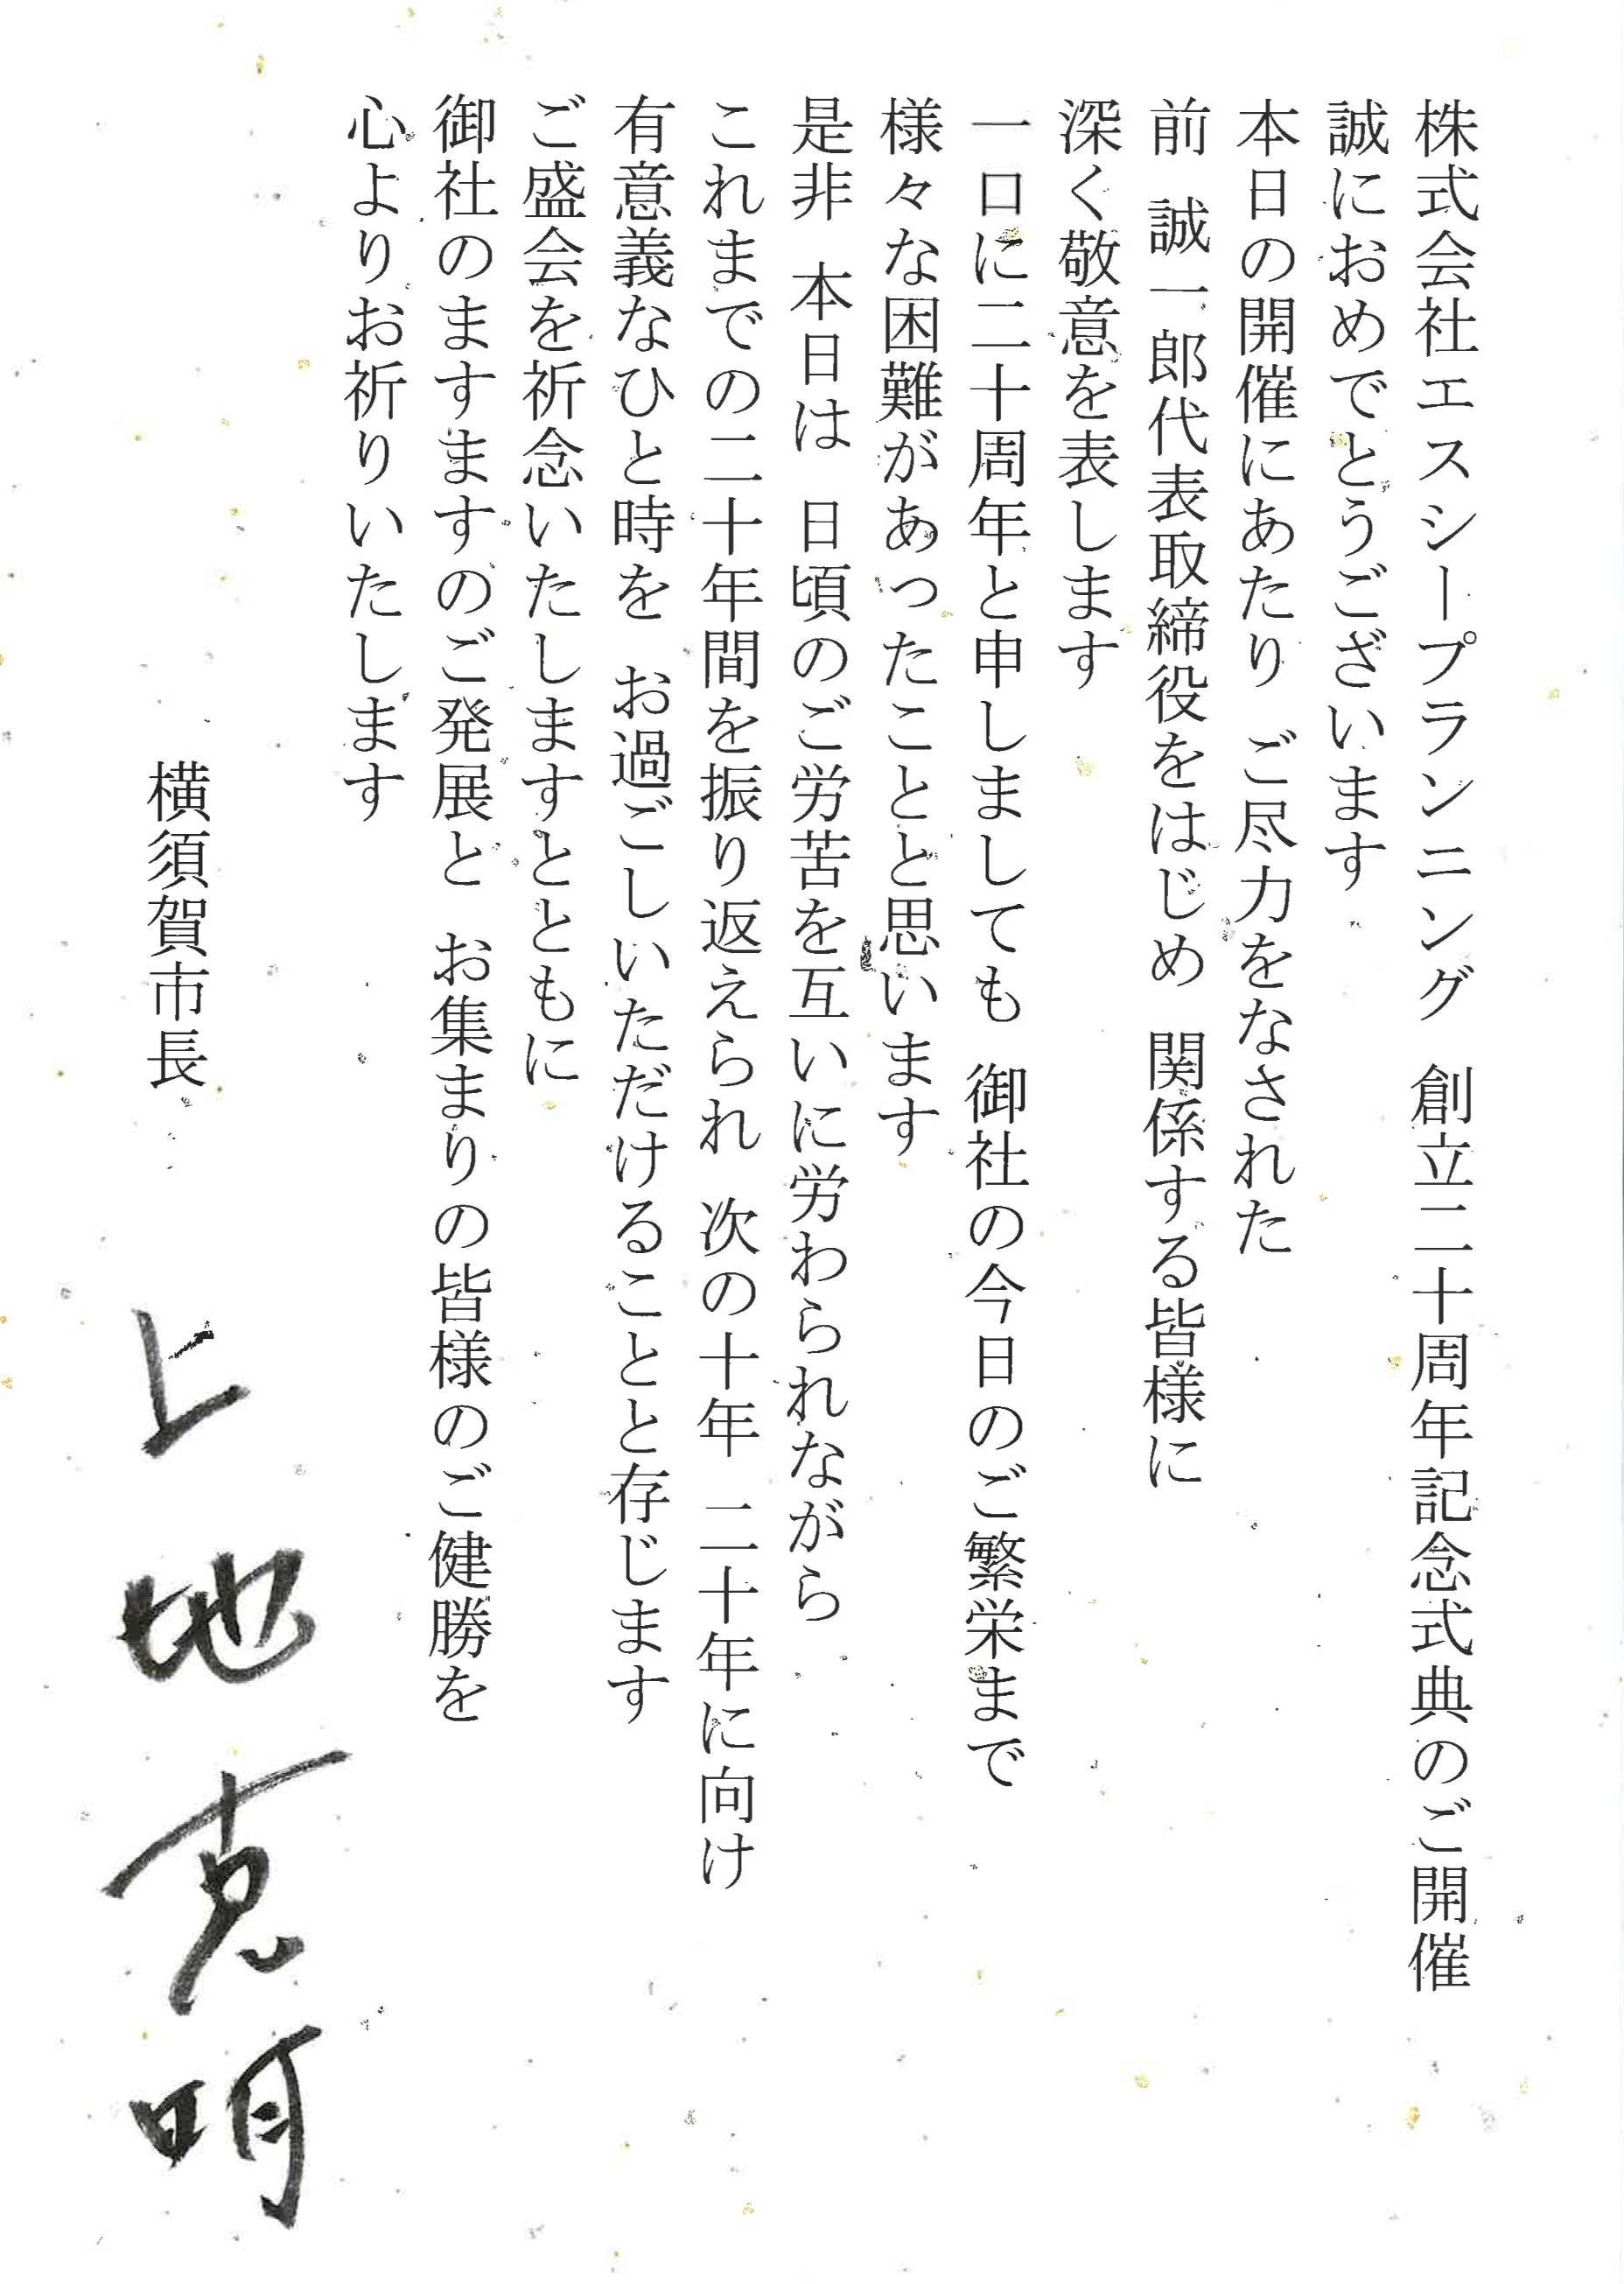 株式会社エスシープランニング　創立二十周年記念式典のご開催
誠におめでとうございます
本日の開催にあたり　ご尽力をなされた
前　誠一郎代表取締役をはじめ　関係する皆様に
深く敬意を表します
一口に二十周年と申しましても　御社の今日のご繁栄まで
様々な困難があったことと思います
是非　本日は　日頃のご労苦を互いに労わられながら
これまでの二十年間を振り返えられ　次の十年　二十年に向け
有意義なひと時を　お過ごしいただけることと存じます
ご盛会を祈念いたしますとともに
御社のますますのご発展と　お集まりの皆様のご健勝を
心よりお祈りいたします
横須賀市長　上地克明